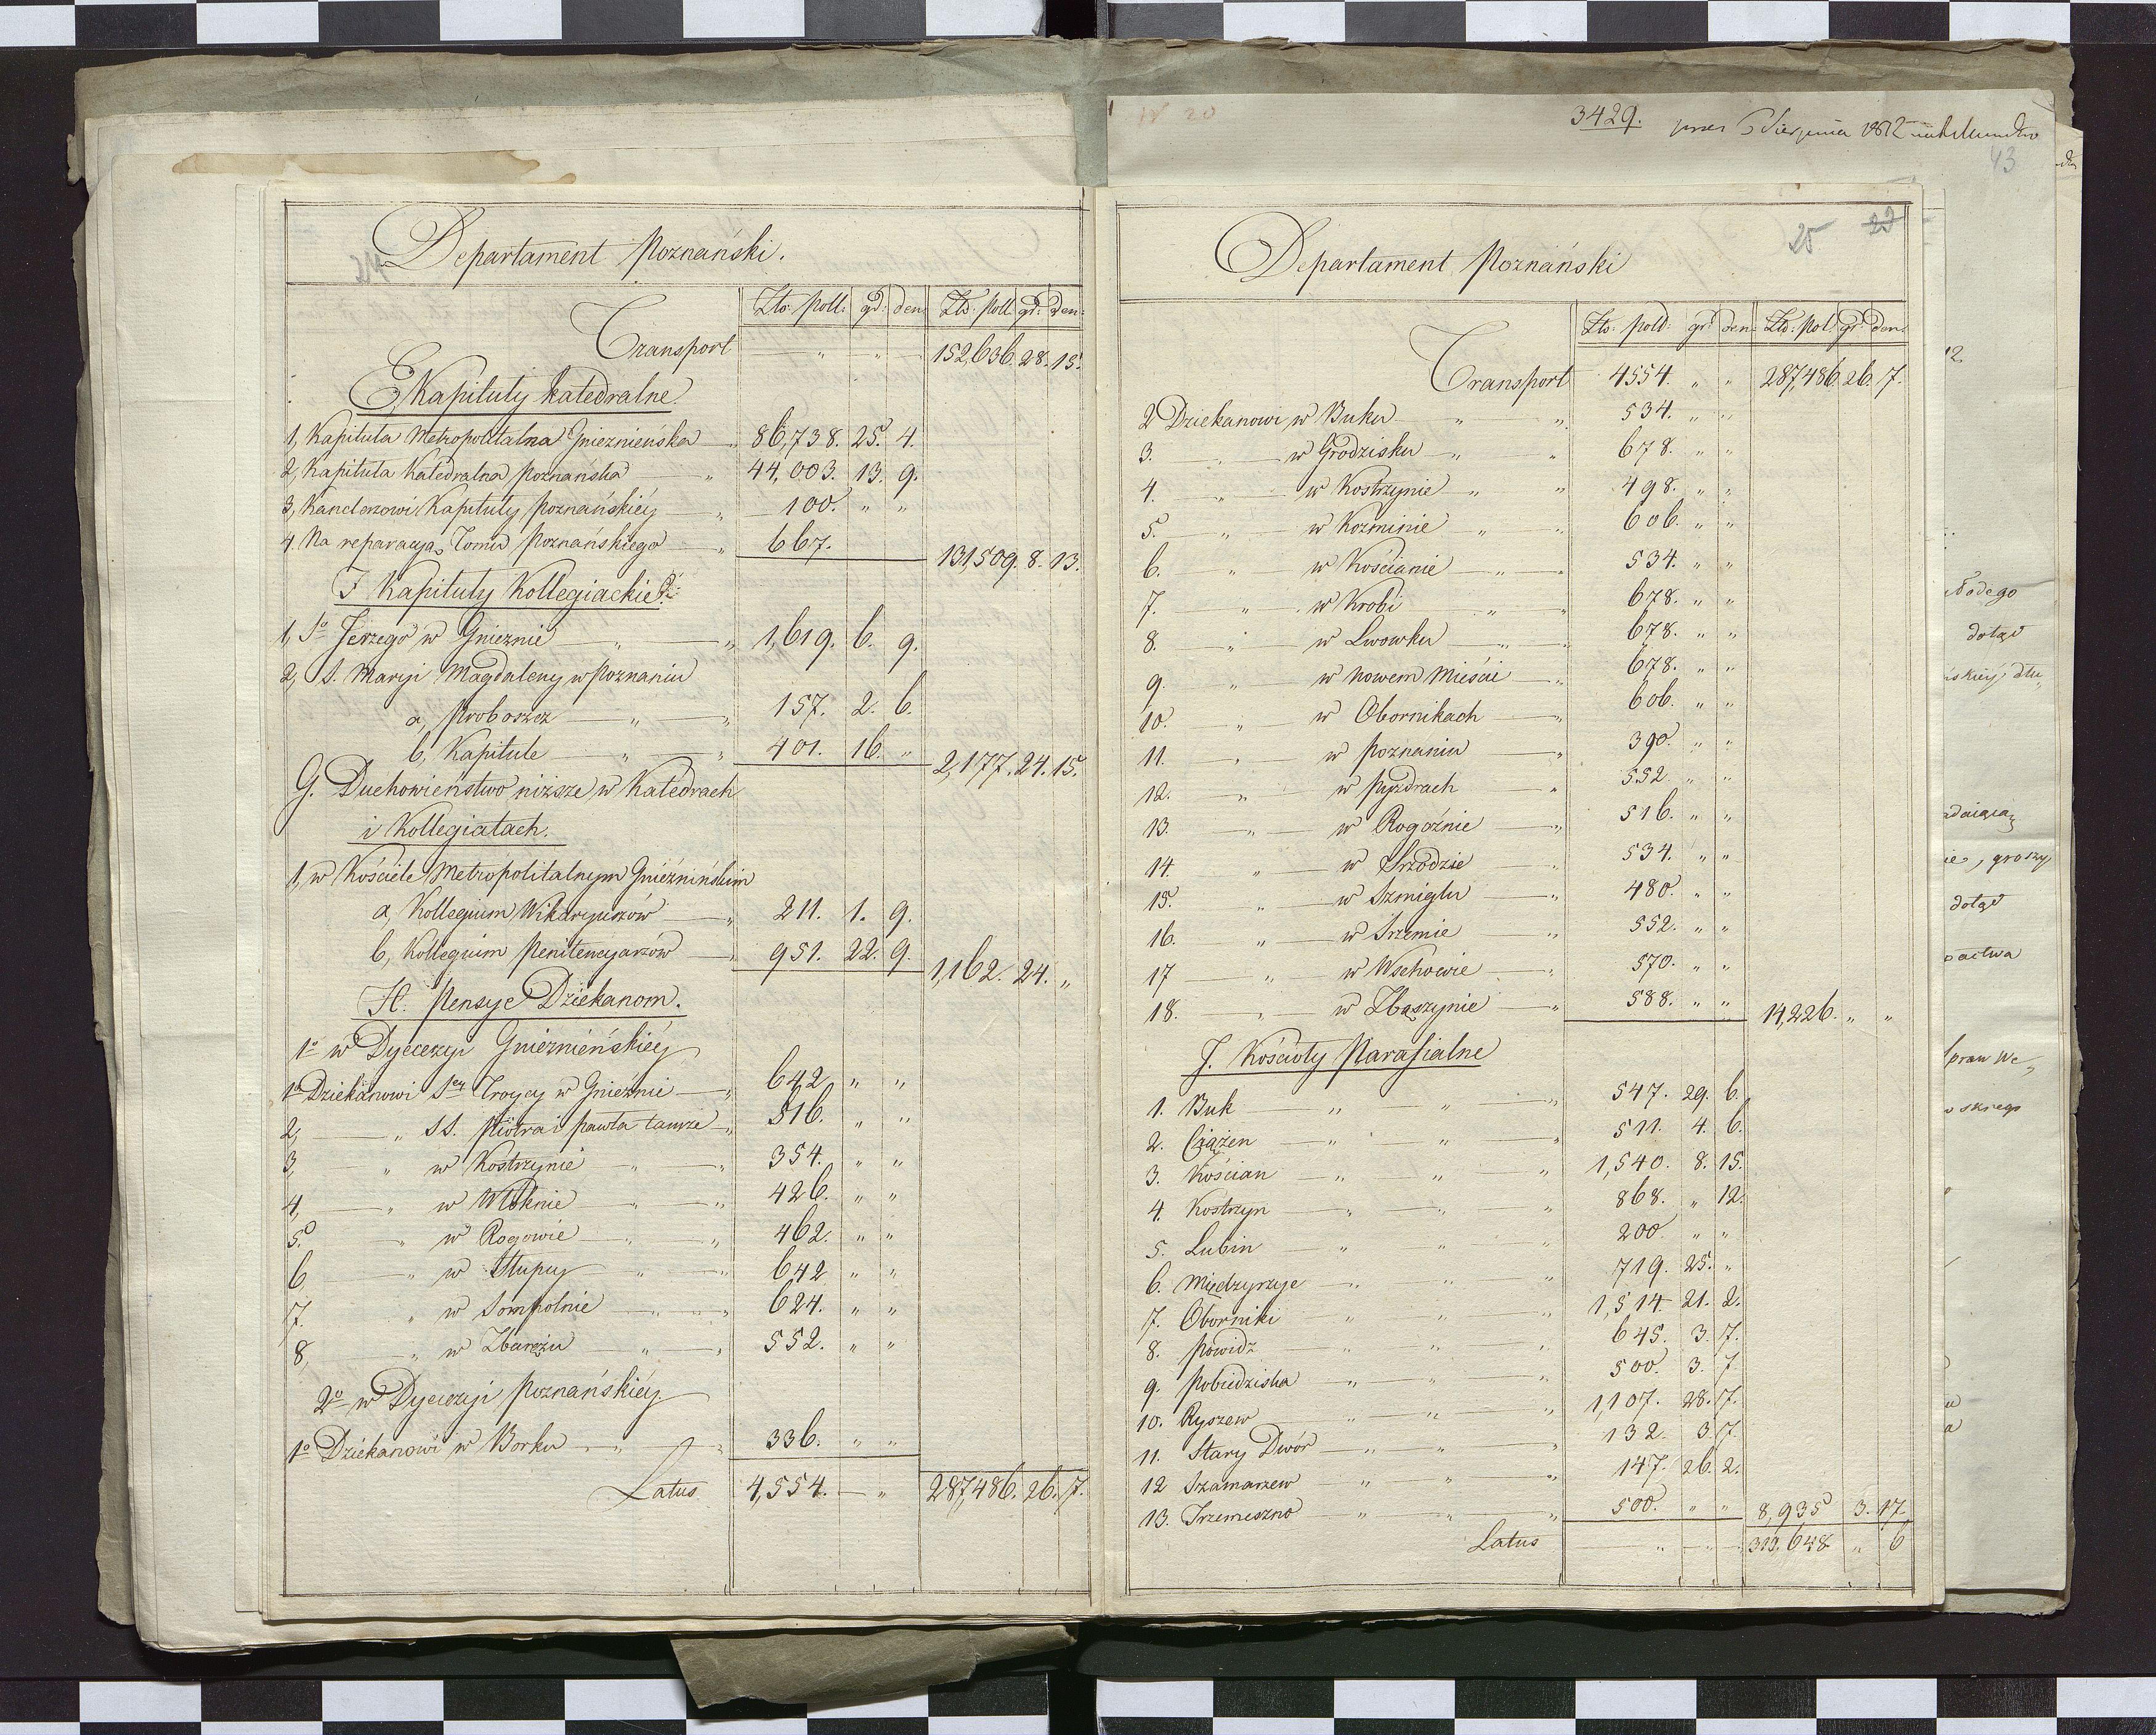 Departament Poznański.
Zło: poll: gr: den: Zło: poll: gr: den:
Transport — „ — „ — 152,636. 28. 15.
E Kapituły katedralne
1, Kapituła Metropolitalna Gnieznieńska — 86,738. 25. 4.
2, Kapituła Katedralna poznańska — „ 44,003. 13. 9.
3, Kanclerzowi Kapituły poznańskiéy — „ 100. „ „
4. Na reparacyą Tomu Poznańskiego — „ 667. 131,509. 8. 13.
F Kapituły Kollegiackie
1, So Jerzego w Gnieznie — „ — „ 1,619. 6. 9.
2, S. Maryi Magdaleny w poznaniu
a, Proboszcz — „ — „ 157. 2. 6.
b, Kapitule — „ — „ 401. 16. „ 2,177. 24. 15.
G. Duchowieństwo niższe w Katedrach
i Kollegiatach.
1, w Kościele Metropolitalnym Gnieźnińskim
a, Kollegium Wikaryuszów — „ 211. 1. 9.
b, Kollegium Penitencyarzów — 951. 22. 9. 1,162. 24. „
H. Pensye Dziekanom.
1o w Dyecezyi Gnieznieńskiéy
1o Dziekanowi Sey Troycy w Gnieźnie — „ 642 „ „
2, — „ SS. Piotra i pawła tamże — „ 516. „ „
3, „ w Kostrzynie — „ — „ 354. „ „
4, — „ w Włoknie — „ — „ 426. „ „
5. „ w Rogowie — „ — „ 462. „ „
6, „ w Słupcy — „ — „ 642 „ „
7. „ w Sompolnie — „ — „ 624. „ „
8, „ w Zbarężu — „ — „ 552. „ „
2o w Dyecezyi poznańskiéy
1o Dziekanowi w Borku — „ — „ 336. „ „
Latus 4,554. — „ 287,486. 26. 7.
3429.
43
25 29
Departament Poznański
Zło: pold: gr: den: Zło: pol: gr: den:
Transport 4554. „ „ 287,486. 26. 7.
2 Dziekanowi w Buku — „ „ 534. „ „
3. — „ — w Grodzisku — „ „ 678. „ „
4. — „ — w Kostrzynie — „ „ 498. „ „
5. — „ — w Kozminie — „ „ 606. „ „
6. — „ w Kościanie — „ — 534. „ „
7. „ w Krobi „ „ 678. „ „
8. „ w Lwowku — „ — „ 678. „ „
9. „ w nowem Mieście — „ 678. „ „
10. „ w Obornikach — „ 606. „ „
11. „ w poznaniu — „ 390. „ „
12. „ w Pyzdrach „ 552 „ „
13. „ — w Rogoźnie — „ 516. „ „
14. „ — w Srzodzie „ 534. „ „
15. „ — w Szmiglu — „ 480. „ „
16. „ — w Srzemie — „ 552. „ „
17 — „ — w Wschowie — „ 570. „ „
18. „ — w Zbąszynie — „ 588. „ „ 14,226. „ „
J. Kościoły Parafialne
1. Buk — „ — „ — „ 547. 29. 6.
2. Ciążen — „ — „ — „ 511. 4. 6.
3. Kościan — „ — „ — „ 1,540. 8. 15.
4. Kostrzyn — „ — „ — „ 868. „ 12.
5. Lubin — „ — „ — „ 200. „ „
6. Międzyrzyc — „ „ „ 719. 25. „
7. Oborniki — „ — „ — „ 1,514. 21. 2.
8. Powidz — „ — „ „ 645. 3. 7.
9. Pobiedziska — „ — „ — „ 500. 3. 7.
10. Ryszew „ — „ — „ 1,107. 28. 7.
11. Stary Dwór — „ „ — „ 132. 3. 7.
12 Szamarzew — „ „ „ 147. 26. 2.
13. Trzemeszno „ „ „ 500. „ „ 8,935 3. 17.
Latus — „ — 310,648 „ 6